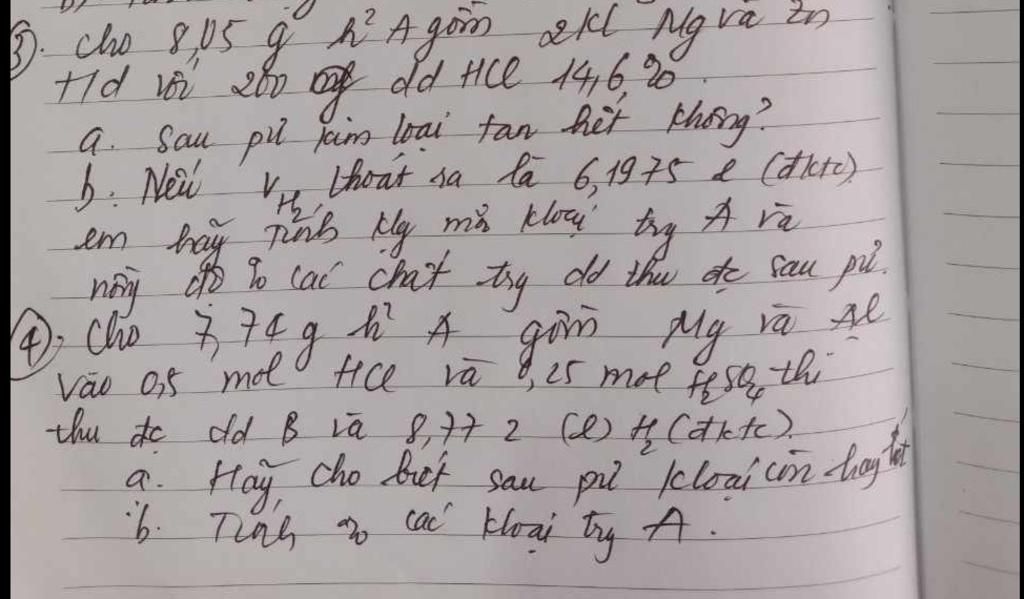 ③. Cho 8,05 g h² A gồm 2kl Mg và Zn
t/d với 200 g dd HCl 14,6 %.
a. Sau pứ kim loại tan hết không?
b. Nếu V H₂ thoát ra là 6,1975 l (đktc)
em hãy Tính klg mỗi kloại trg A và
nồng độ % các chất trg dd thu đc sau pứ.
④. Cho 7,74 g h² A gồm Mg và Al
vào 0,5 mol HCl và 0,25 mol H₂SO₄ thì
thu đc dd B và 8,77 2 (l) H₂ (đktc).
a. Hãy cho biết sau pứ kloại còn hay hết
b. Tính % các kloại trg A.